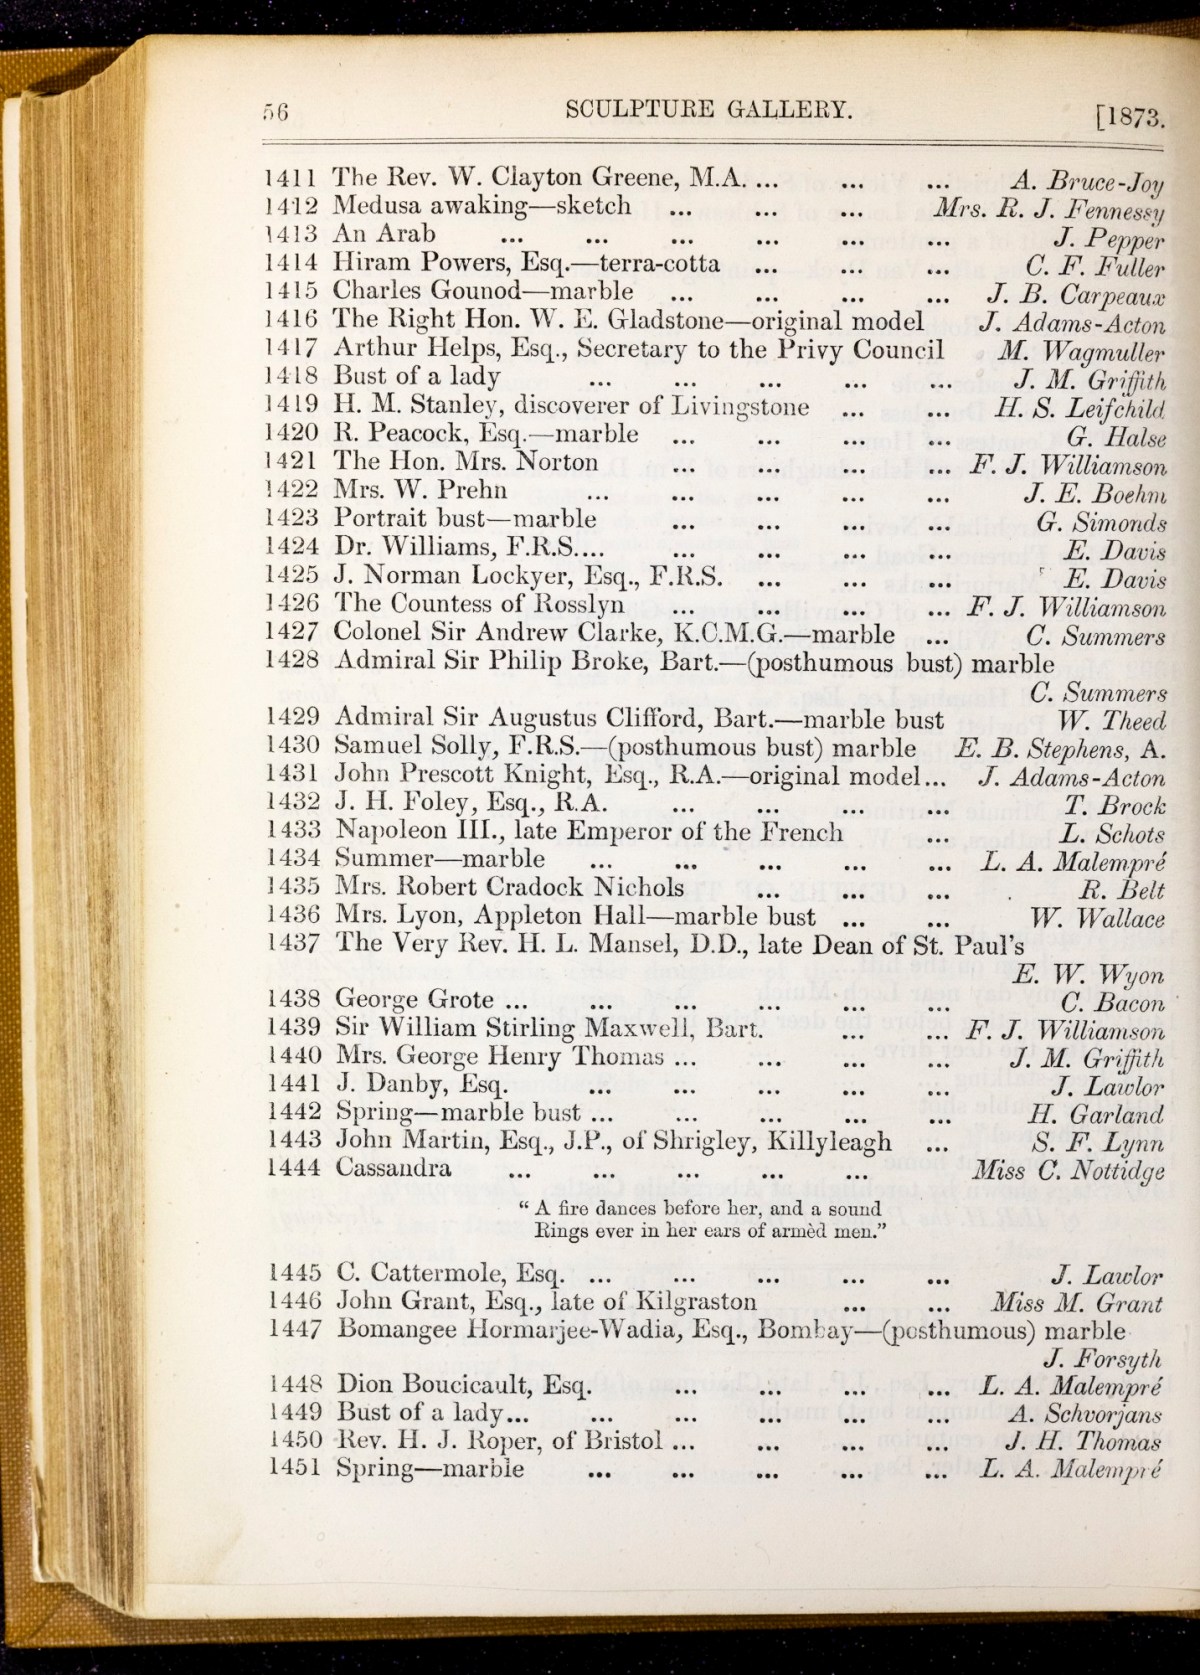 56 SCULPTURE GALLERY. [1873.
1411 The Rev. W. Clayton Greene, M.A. ... ... ... A. Bruce-Joy
1412 Medusa awaking—sketch ... ... ... Mrs. R. J. Fennessy
1413 An Arab ... ... ... ... ... ... J. Pepper
1414 Hiram Powers, Esq.—terra-cotta ... ... ... C. F. Fuller
1415 Charles Gounod—marble ... ... ... ... J. B. Carpeaux
1416 The Right Hon. W. E. Gladstone—original model J. Adams-Acton
1417 Arthur Helps, Esq., Secretary to the Privy Council M. Wagmuller
1418 Bust of a lady ... ... ... ... ... J. M. Griffith
1419 H. M. Stanley, discoverer of Livingstone ... ... H. S. Leifchild
1420 R. Peacock, Esq.—marble ... ... ... ... G. Halse
1421 The Hon. Mrs. Norton ... ... ... ... F. J. Williamson
1422 Mrs. W. Prehn ... ... ... ... ... J. E. Boehm
1423 Portrait bust—marble ... ... ... ... G. Simonds
1424 Dr. Williams, F.R.S.... ... ... ... ... E. Davis
1425 J. Norman Lockyer, Esq., F.R.S. ... ... ... E. Davis
1426 The Countess of Rosslyn ... ... ... ... F. J. Williamson
1427 Colonel Sir Andrew Clarke, K.C.M.G.—marble ... C. Summers
1428 Admiral Sir Philip Broke, Bart.—(posthumous bust) marble
C. Summers
1429 Admiral Sir Augustus Clifford, Bart.—marble bust W. Theed
1430 Samuel Solly, F.R.S.—(posthumous bust) marble E. B. Stephens, A.
1431 John Prescott Knight, Esq., R.A.—original model... J. Adams-Acton
1432 J. H. Foley, Esq., R.A. ... ... ... ... T. Brock
1433 Napoleon III., late Emperor of the French ... L. Schots
1434 Summer—marble ... ... ... ... ... L. A. Malempré
1435 Mrs. Robert Cradock Nichols ... ... ... R. Belt
1436 Mrs. Lyon, Appleton Hall—marble bust ... ... W. Wallace
1437 The Very Rev. H. L. Mansel, D.D., late Dean of St. Paul's
E. W. Wyon
1438 George Grote ... ... ... ... ... ... C. Bacon
1439 Sir William Stirling Maxwell, Bart. ... ... F. J. Williamson
1440 Mrs. George Henry Thomas ... ... ... ... J. M. Griffith
1441 J. Danby, Esq. ... ... ... ... ... J. Lawlor
1442 Spring—marble bust ... ... ... ... ... H. Garland
1443 John Martin, Esq., J.P., of Shrigley, Killyleagh ... S. F. Lynn
1444 Cassandra ... ... ... ... ... Miss C. Nottidge
“ A fire dances before her, and a sound
Rings ever in her ears of armèd men.”
1445 C. Cattermole, Esq. ... ... ... ... ... J. Lawlor
1446 John Grant, Esq., late of Kilgraston ... ... Miss M. Grant
1447 Bomangee Hormarjee-Wadia, Esq., Bombay—(posthumous) marble
J. Forsyth
1448 Dion Boucicault, Esq. ... ... ... ... L. A. Malempré
1449 Bust of a lady... ... ... ... ... ... A. Schvorjans
1450 Rev. H. J. Roper, of Bristol ... ... ... ... J. H. Thomas
1451 Spring—marble ... ... ... ... ... L. A. Malempré